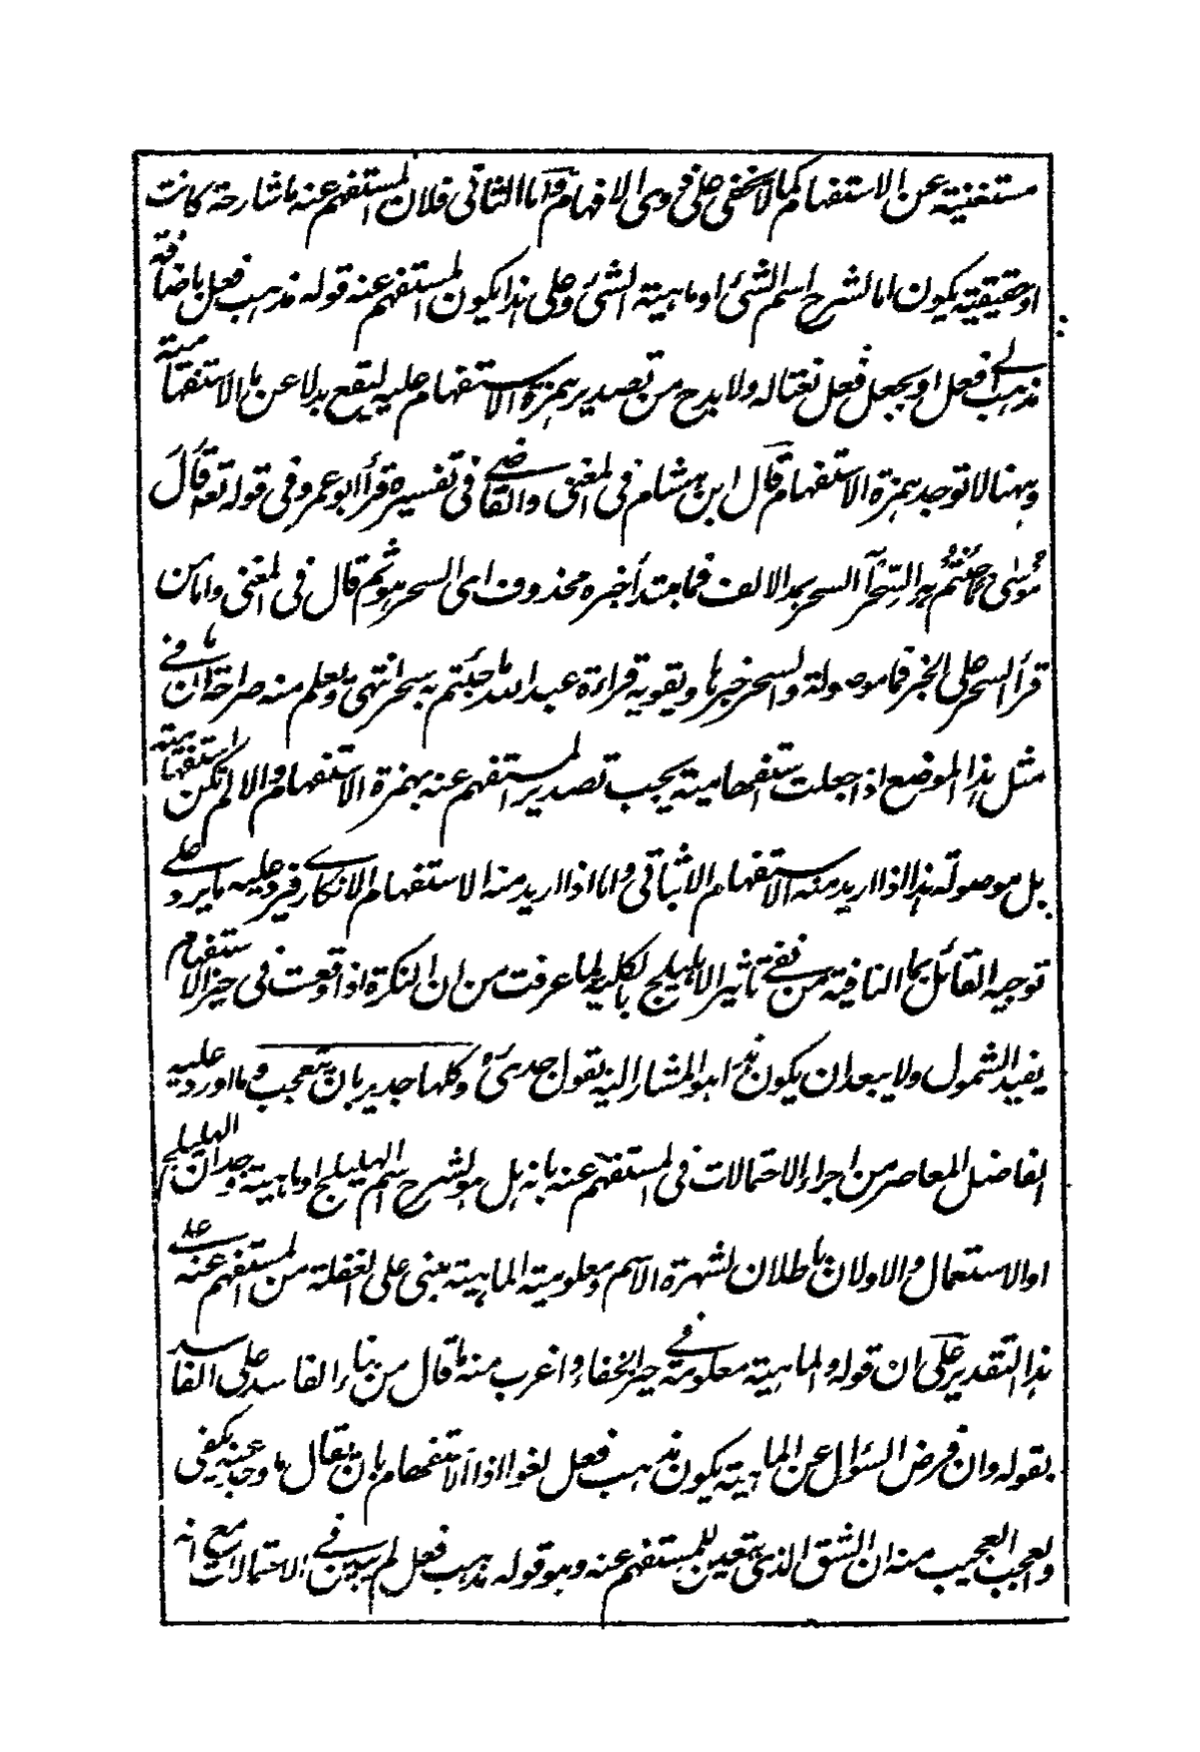 مستغنية عن الاستفهام كما لا يخفى على ذوى الافهام واما الثانى فلان المستفهم عنه ما شارحة كانت
او حقيقية يكون اما لشرح اسم الشئ او ماهية الشئ وعلى هذا يكون المستفهم عنه قوله مذهب فعل باضافة
مذهب الى فعل او يجعل فعل نعتا له ولا بد ح من تصدير همزة الاستفهام عليه ليقع بدلا عن ما الاستفهامية
وههنا لا توجد همزة الاستفهام قال ابن هشام فى المغنى والقاضى فى تفسيره قرأ ابو عمرو فى قوله تعه قَالَ
مُوسٰى مَا جِئْتُمْ بِهِ السِّحْرُ آلسحر بمد الالف فما مبتدأ خبره محذوف اى السحر هو ثم قال فى المغنى واما من
قرأ السحر على الخبر فما موصولة والسحر خبرها ويقويه قراءة عبد الله ما جئتم به سحر انتهى ولعلم منه صراحة ان ما فى
مثل هذا الموضع اذا جعلت استفهامية يجب تصدير المستفهم عنه بهمزة الاستفهام والا لم تكن استفهامية
بل موصولة هذا اذا اريد منه الاستفهام الاثباتى واما اذا اريد منه الاستفهام الانكارى فيرد عليه ما يرد على
توجيه القائل بما النافية من نفى تاثير الاهليلج بالكلية لما عرفت من ان النكرة اذا وقعت فى حيز الاستفهام
يفيد الشمول ولا يبعد ان يكون هذا هو المشار اليه بقول جدى وكلها جدير بان يتعجب وما اورد عليه
الفاضل المعاصر من اجراء الاحتمالات فى المستفهم عنه بانه هل هو لشرح اسم الهليلج او ماهيته وجدان الهليلج
او الاستعمال والاولان باطلان لشهرة الاسم ومعلومية الماهية مبنى على لغفلة من المستفهم عنه على
هذا التقدير على ان قوله والماهية معلومة فى حيز الخفاء واغرب منه ما قال من بناء الفاسد على الفاسد
بقوله وان فرض السؤال عن الماهية يكون مذهب فعل لغوا اذا الاستفهام بان يقال ما وجد عينه يكفى
والعجب العجيب منه ان الشق الذى يتعين للمستفهم عنه وهو قوله مذهب فعل لم يبد فى الاحتمالات مع انه